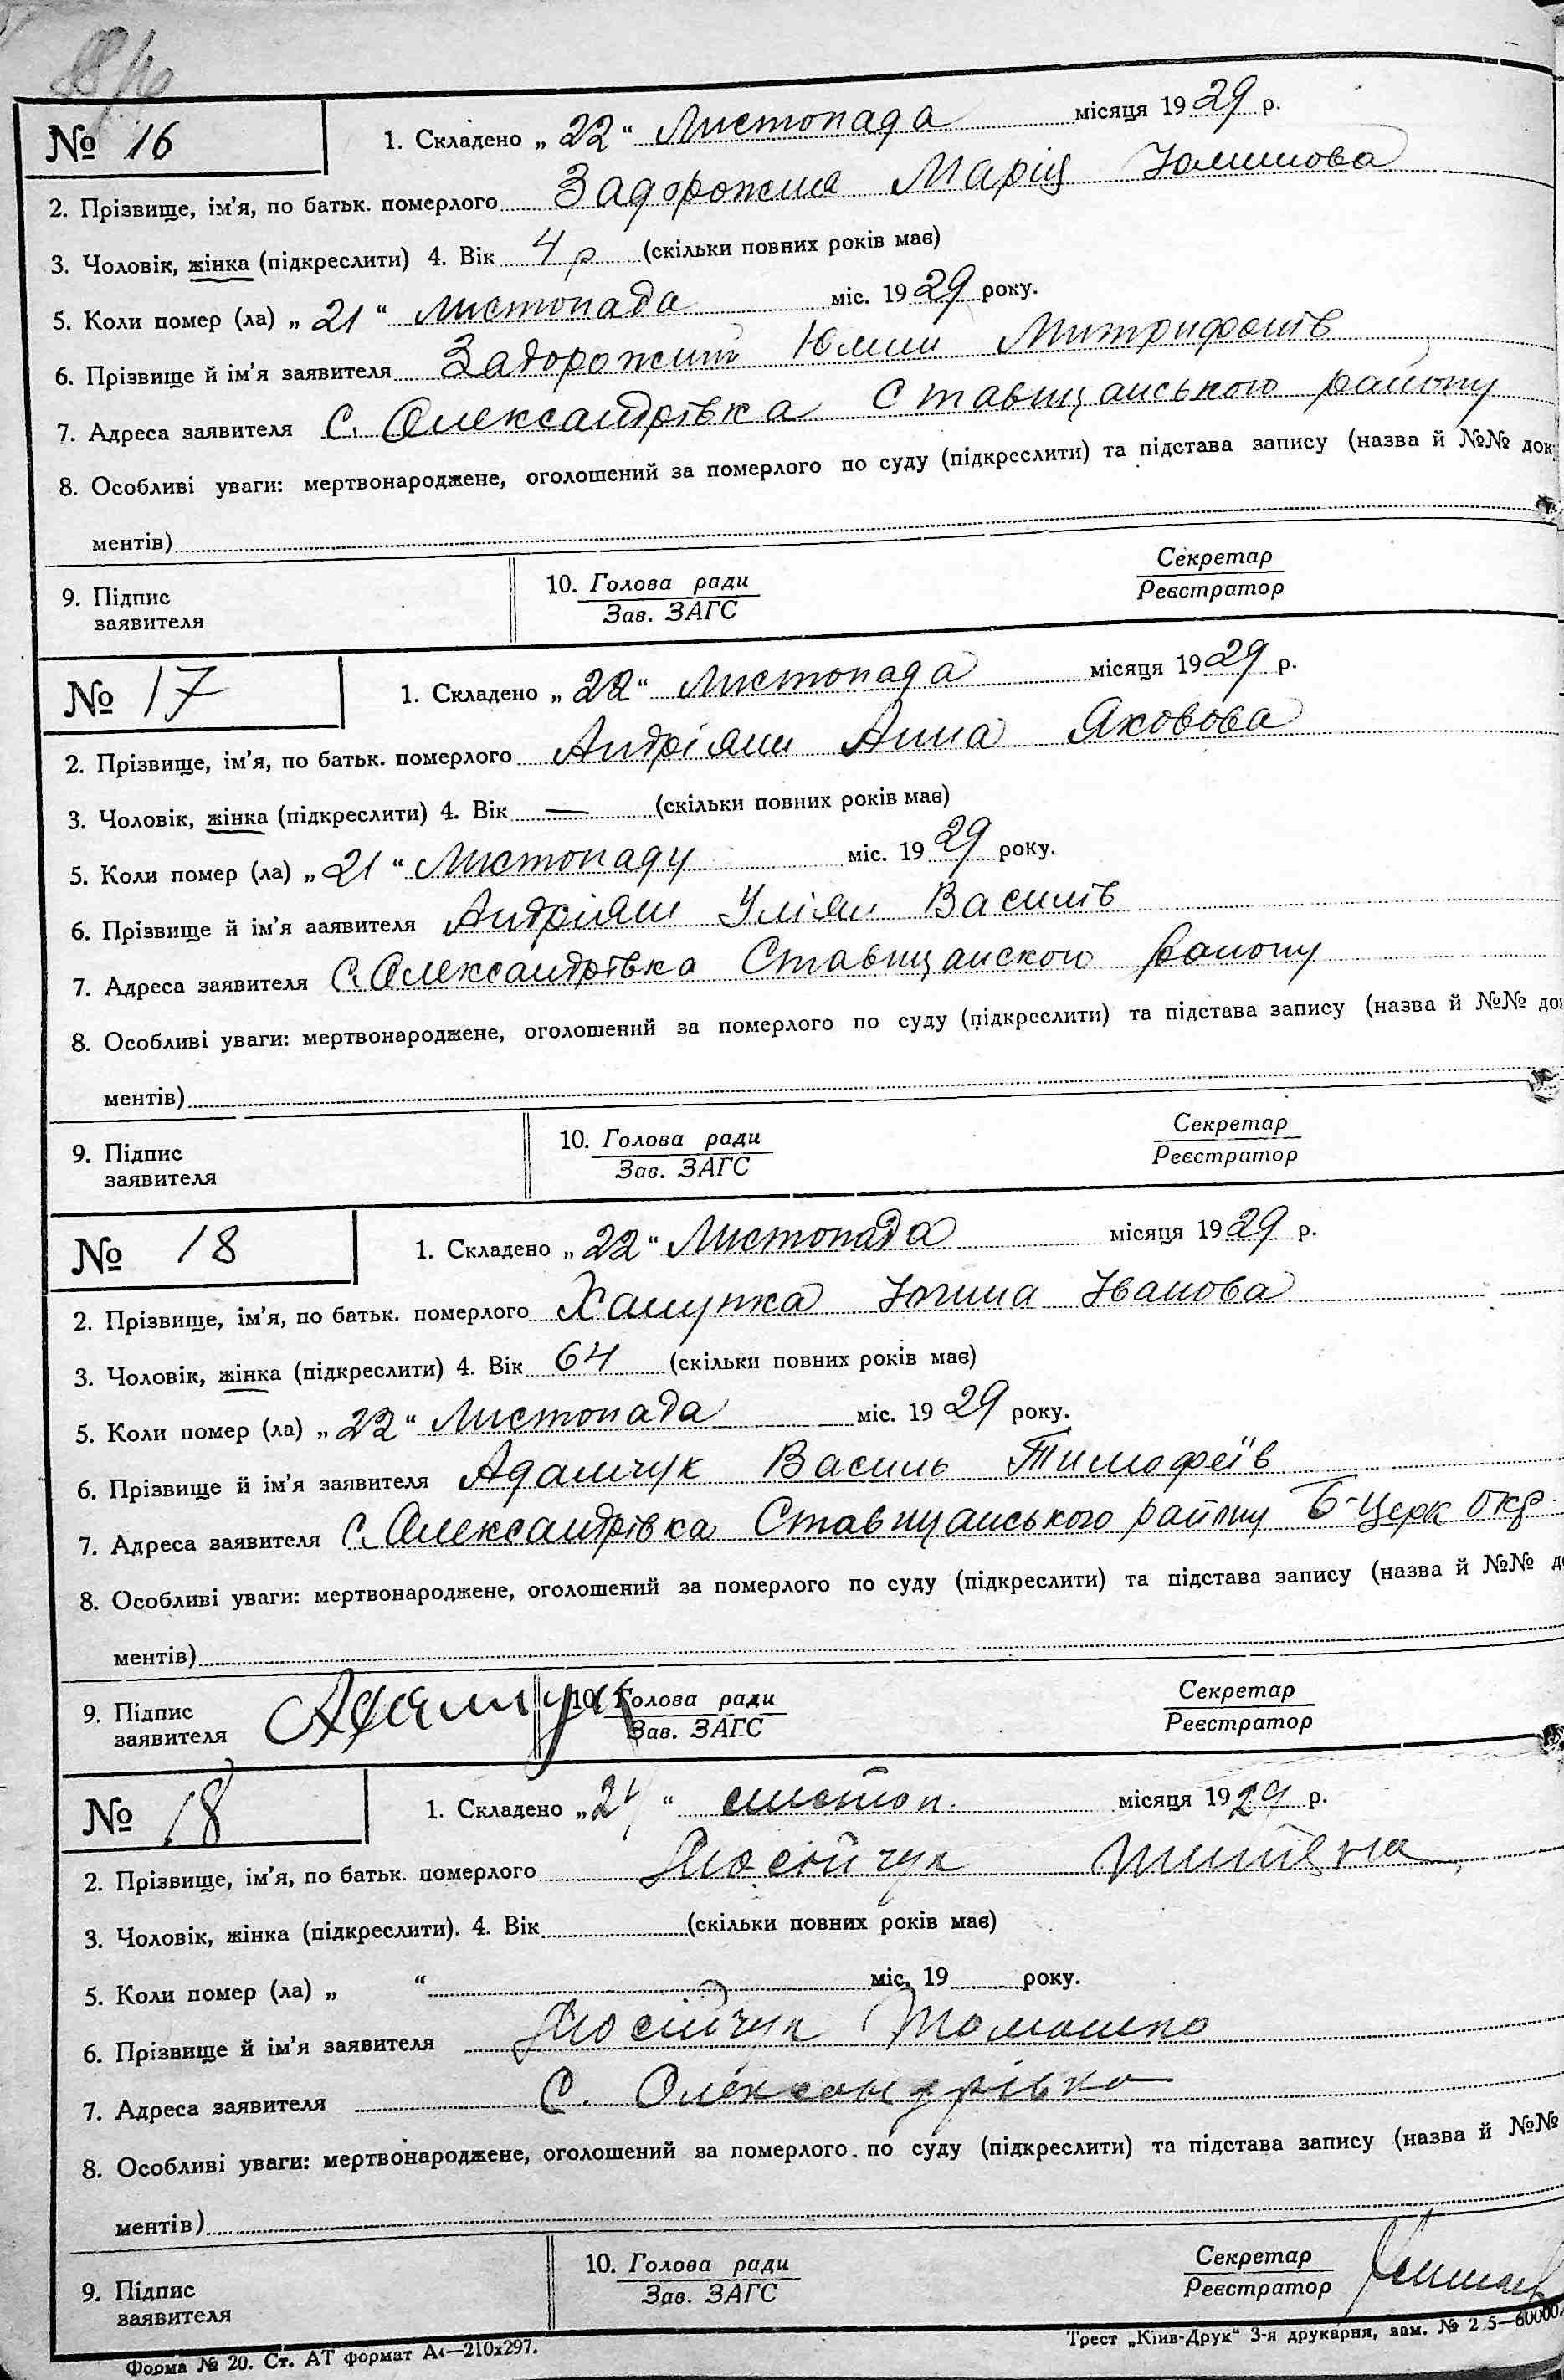 88/16
№ 16
1. Складено „ 22 “ Листопада місяця 1929 р.
2. Прізвище, ім'я, по батьк. померлого Задорожна Марія Юлинова
3. Чоловік, жінка (підкреслити) 4. Вік 4 р (скільки повних років має)
5. Коли помер (ла) „ 21 “ Листопада міс. 1929 року.
6. Прізвище й ім'я заявителя Задорожний Юлин Митрифонів
7. Адреса заявителя с. Олександрівка Ставищанського району
8. Особливі уваги: мертвонароджене, оголошений за померлого по суду (підкреслити) та підстава запису (назва й №№ док
ментів)
9. Підпис заявителя
10. Голова ради
Зав. ЗАГС
Секретар
Реєстратор
№ 17
1. Складено „ 22 “ Листопада місяця 1929 р.
2. Прізвище, ім'я, по батьк. померлого Андріяш Анна Яковова
3. Чоловік, жінка (підкреслити) 4. Вік — (скільки повних років має)
5. Коли помер (ла) „ 21 “ Листопаду міс. 1929 року.
6. Прізвище й ім'я заявителя Андріяш Уліян Василів
7. Адреса заявителя с. Олександрівка Ставищанского району
8. Особливі уваги: мертвонароджене, оголошений за померлого по суду (підкреслити) та підстава запису (назва й №№ до
ментів)
9. Підпис заявителя
10. Голова ради
Зав. ЗАГС
Секретар
Реєстратор
№ 18
1. Складено „ 22 “ Листопада місяця 1929 р.
2. Прізвище, ім'я, по батьк. померлого Халупка Іванова
3. Чоловік, жінка (підкреслити) 4. Вік 64 (скільки повних років має)
5. Коли помер (ла) „ 22 “ Листопада міс. 1929 року.
6. Прізвище й ім'я заявителя Адамчук Василь Тимофеїв
7. Адреса заявителя с. Олександрівка Ставищанського району Б-Церк окр
8. Особливі уваги: мертвонароджене, оголошений за померлого по суду (підкреслити) та підстава запису (назва й №№ д
ментів)
9. Підпис заявителя Адамчук
10. Голова ради
Зав. ЗАГС
Секретар
Реєстратор
№ 18
1. Складено „ 24 “ листоп. місяця 1929 р.
2. Прізвище, ім'я, по батьк. померлого
3. Чоловік, жінка (підкреслити). 4. Вік (скільки повних років має)
5. Коли помер (ла) „ “ міс. 19 року.
6. Прізвище й ім'я заявителя
7. Адреса заявителя с. Олександрівка
8. Особливі уваги: мертвонароджене, оголошений за померлого по суду (підкреслити) та підстава запису (назва й №№
ментів)
9. Підпис заявителя
10. Голова ради
Зав. ЗАГС
Секретар
Реєстратор
Форма № 20. Ст. АТ формат А4—210х297.
Трест „Київ-Друк“ 3-я друкарня, зам. № 2 5—60000.